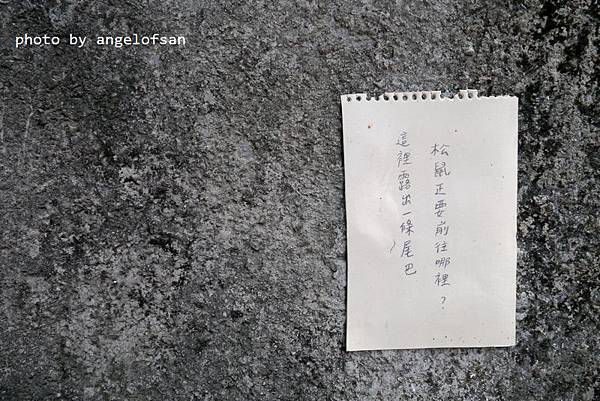 photo by angelofsan
松鼠正要前往哪裡？
這裡露出一條尾巴